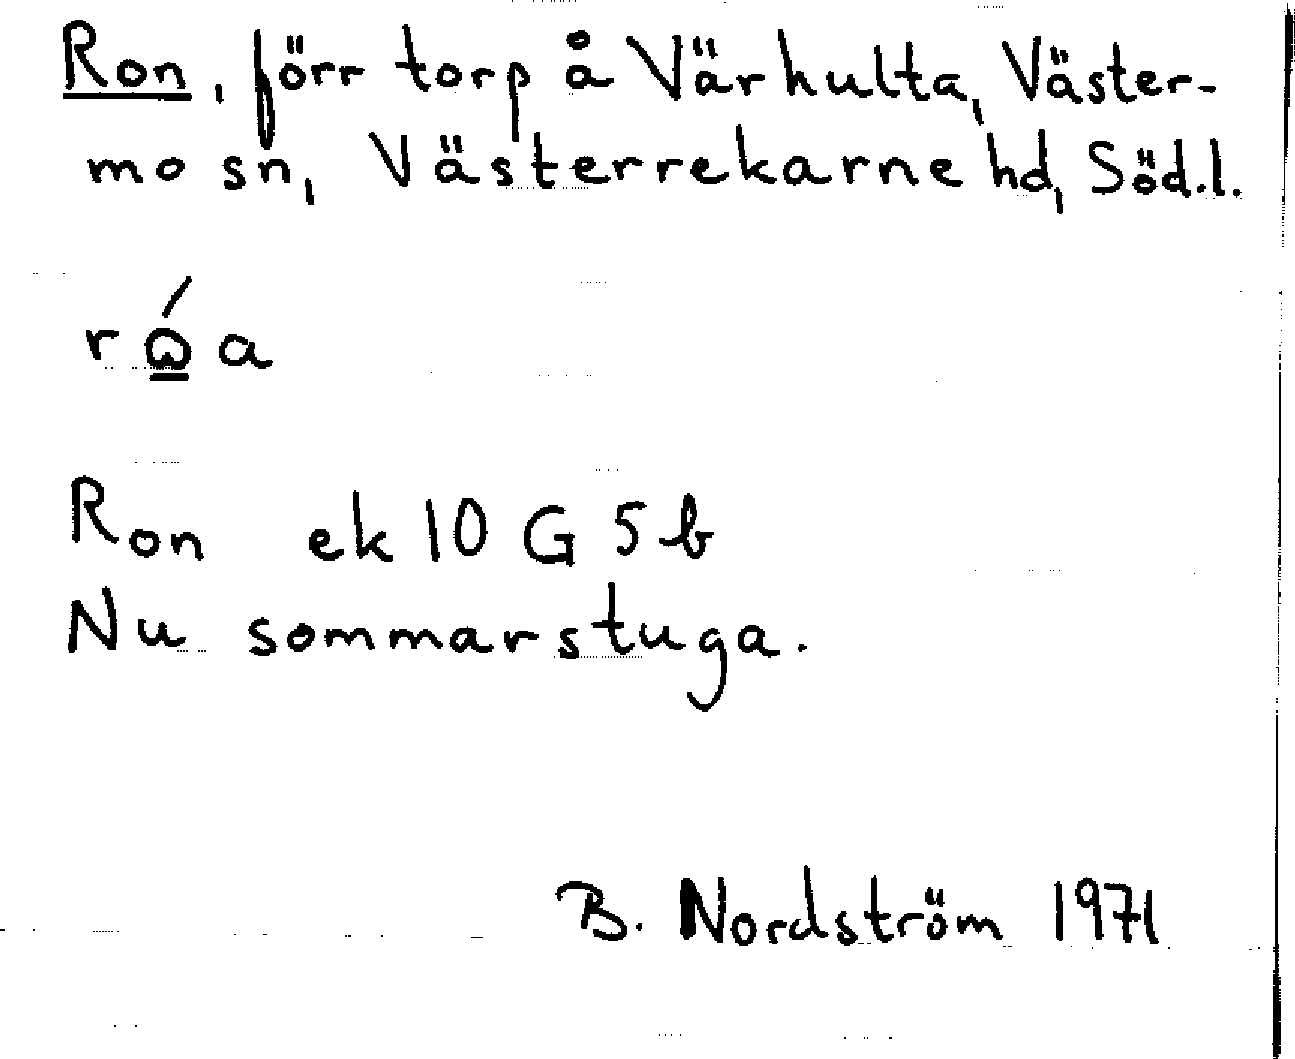 Ron, förr torp å Värhulta, Väster-
mo sn, Västerrekarne hd, Söd.l.
Ron ek 10 G 5 b
Nu sommarstuga.
B. Nordström 1971